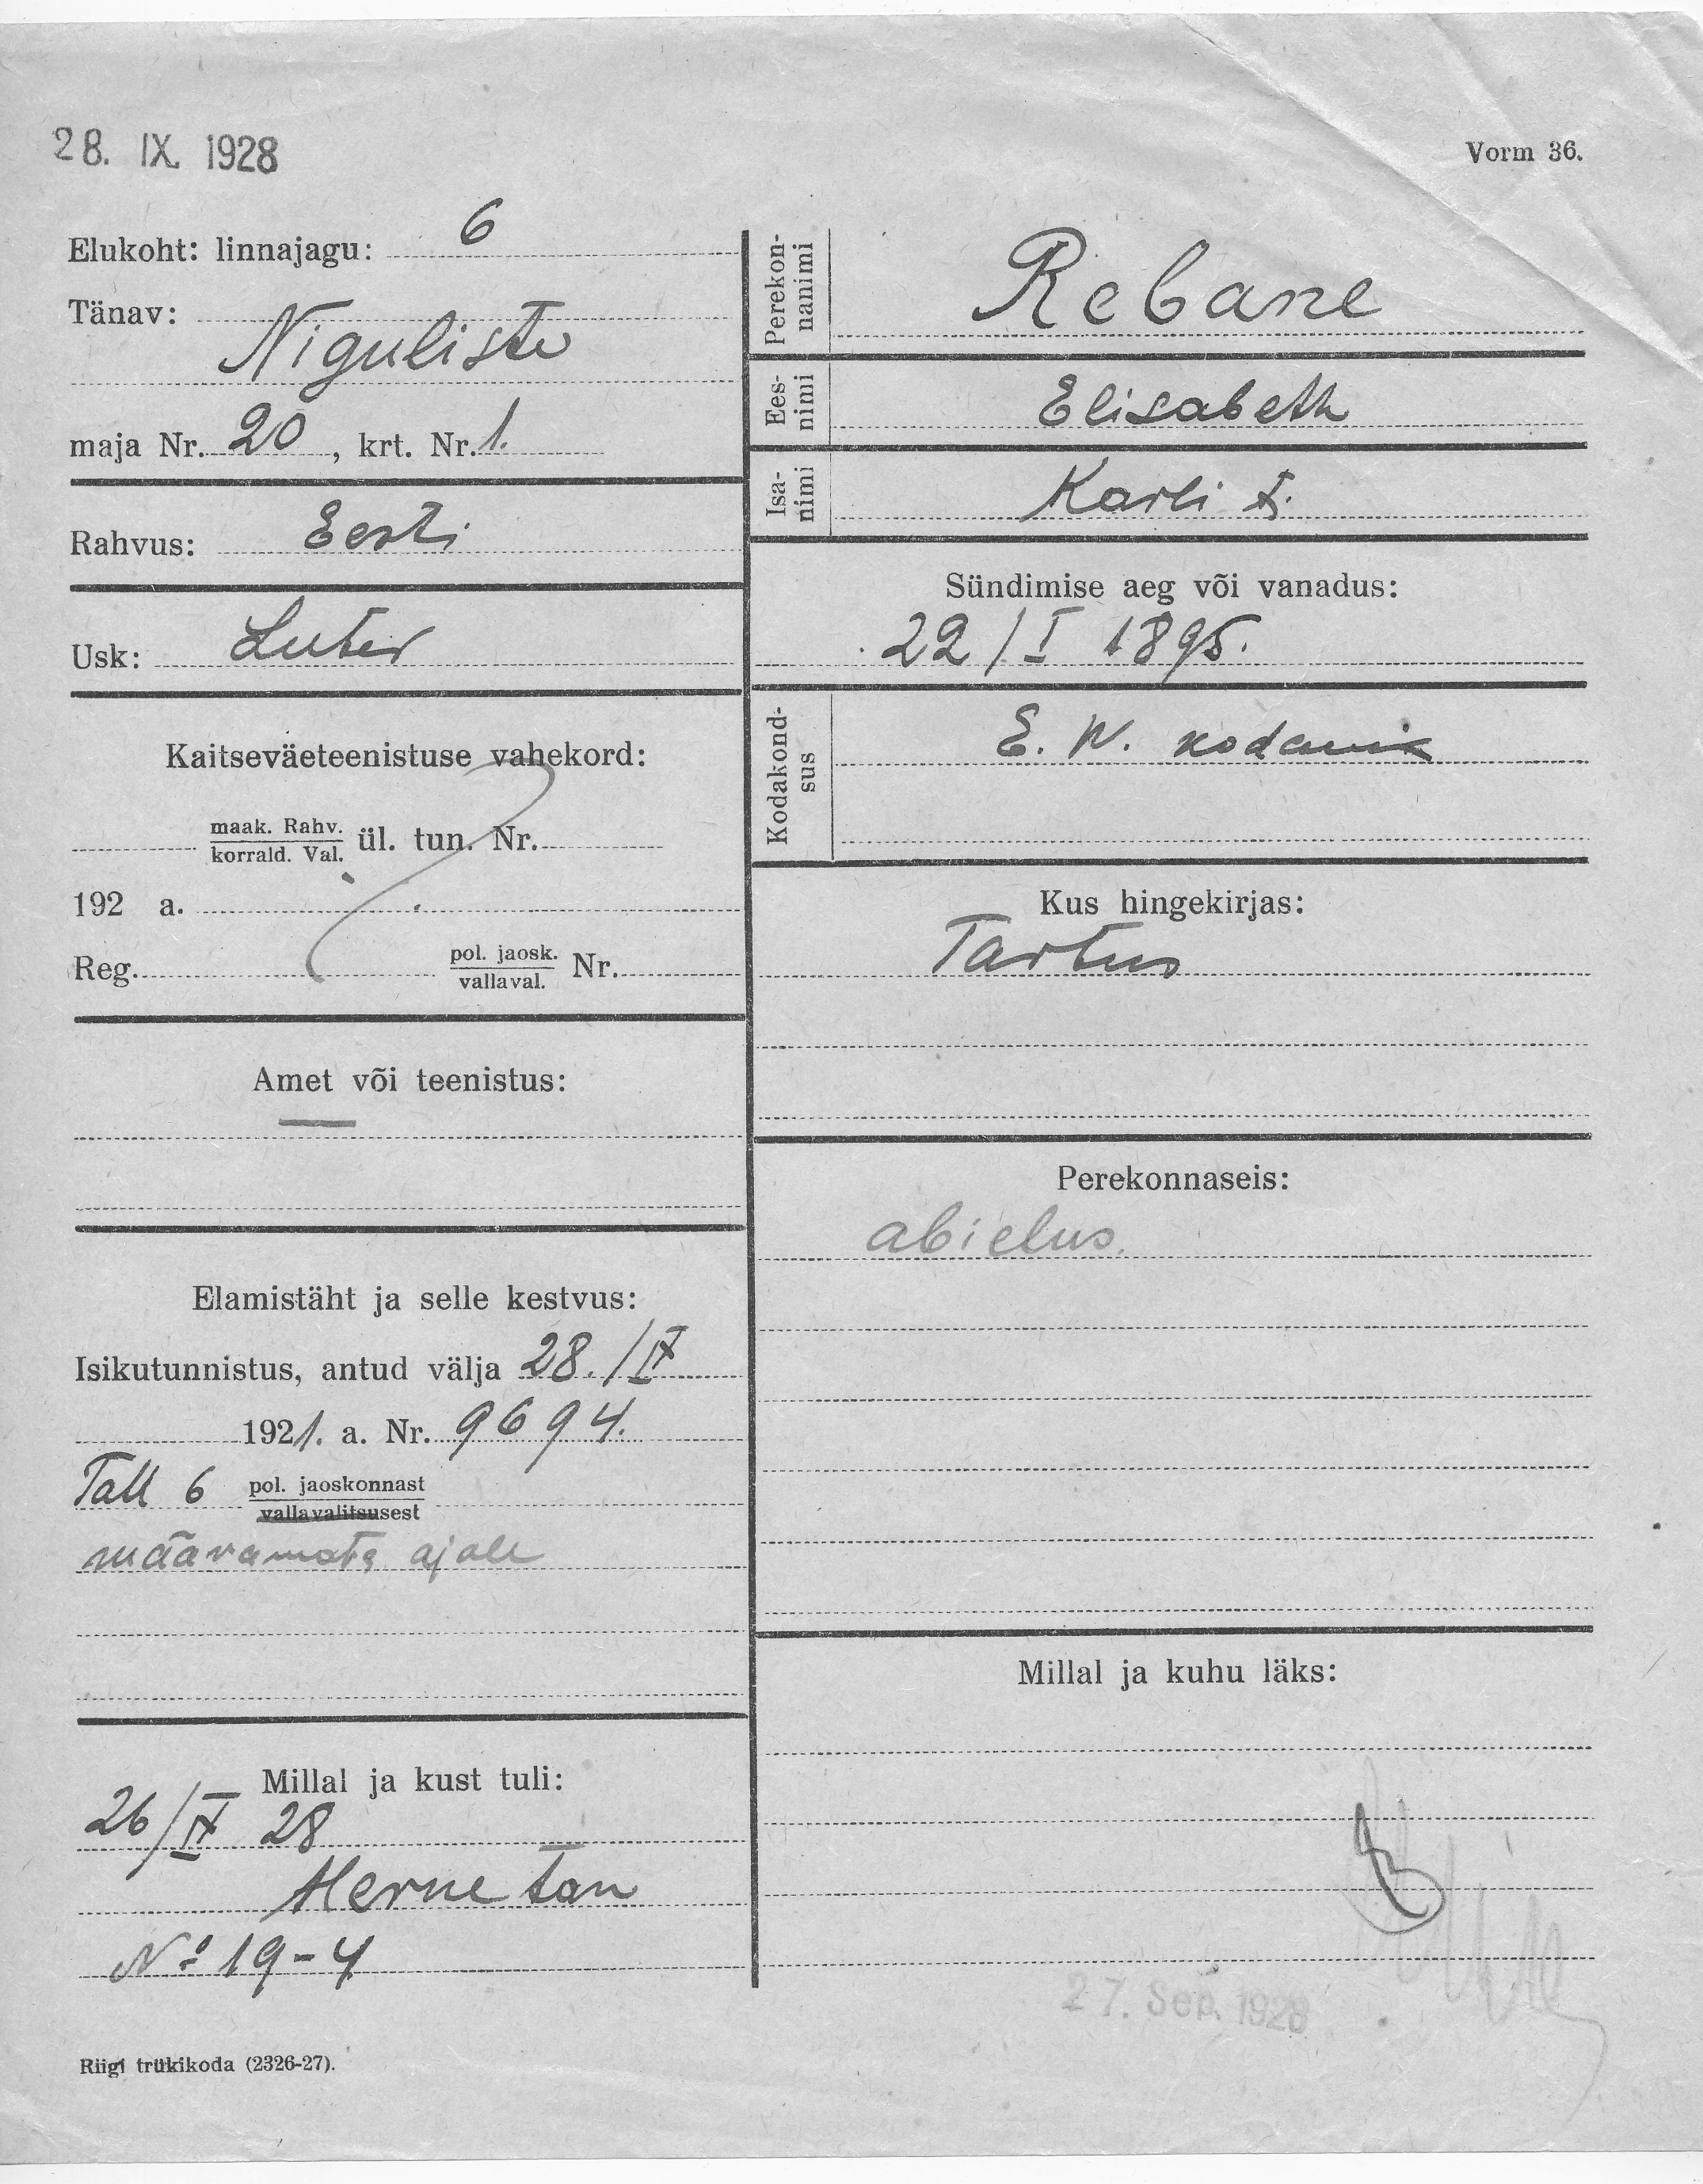 28. IX. 1928
Vorm 36.
Elukoht: linnajagu: 6
Tänav:
Niguliste
maja Nr. 20, krt. Nr. 1.
Rahvus: Eesti
Usk: Luter
Kaitseväeteenistuse vahekord:
maak. Rahv.
korrald. Val. ül. tun. Nr.
192 a.
Reg. pol. jaosk. Nr.
vallaval.
Amet või teenistus:
—
Elamistäht ja selle kestvus:
Isikutunnistus, antud välja 28./IX
1921. a. Nr. 9694.
Tall 6 pol. jaoskonnast
vallavalitsusest
määramata ajale
Millal ja kust tuli:
26/IX 28
Herne tän
No 19-4
Riigi trükikoda (2326-27).
Perekon-
nanimi
Rebane
Ees-
nimi
Elisabeth
Isa-
nimi
Karli t.
Sündimise aeg või vanadus:
22/I 1895.
Kodakond-
sus
E. W. kodanik
Kus hingekirjas:
Tartus
Perekonnaseis:
abielus.
Millal ja kuhu läks:
27. Sep. 1928